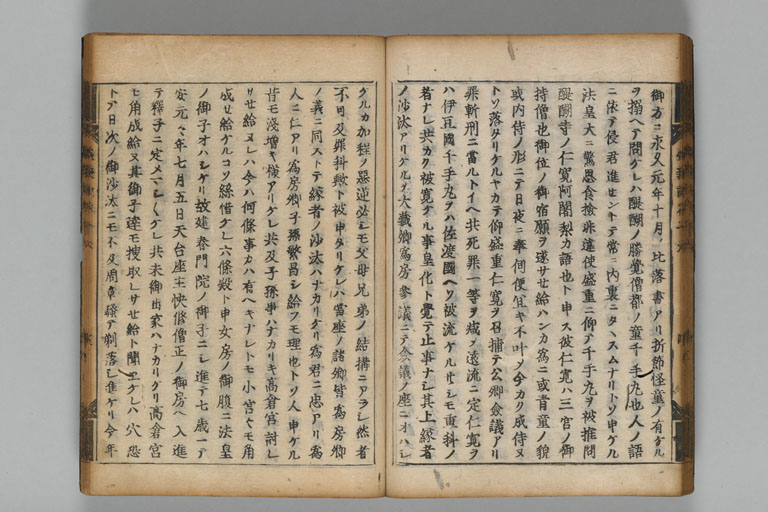 御方ニ永久元年十月ノ比落書アリ折節怪童ノ有ケル
ヲ搦ヘテ問ケレハ醍醐ノ勝覺僧都ノ童千手丸也人ノ語
ニ依テ侵君進セントテ常ニ内裏ニタヽスムナリトソ申ケル
法皇大ニ驚思食撿非違使盛重ニ仰テ千手丸ヲ被推問
醍醐寺ノ仁寛阿闍梨カ語也ト申ス彼仁寛ハ三宮ノ御
持僧也御位ノ御宿願ヲ遂サセ給ハンカ為ニ或青童ノ貌
或内侍ノ形ニテ日夜ニ奉伺便宜不叶ノ今カク成侍ヌ
トソ落タリケルヤカテ仰盛重仁寛ヲ召捕テ公卿僉議アリ
罪斬刑ニ當ルトイヘ共死罪一等ヲ减ノ遠流ニ定仁寛ヲ
ハ伊豆國千手丸ヲハ佐渡國ヘソ被流ケルサシモ重科ノ
者ナレ共カク被寛ケル事皇化ト覺テ止事ナシ其上縁者
ノ沙汰アリケルヲ大藏卿為房參議ニテ僉議ノ座ニオハシ
ケルカ加程ノ惡逆必シモ父母兄弟ノ結構ニアラシ然者
不可及罪科歟ト被申タリケレハ當座ノ諸卿皆為房卿
ノ義ニ同ストテ縁者ノ沙汰ハナカリケリ為君ニ忠アリ為
人ニ仁アリ為房卿子孫繁昌シ給フモ理也トソ人申ケル
昔モ淺増キ様アリケレ共及子孫事ハナカリキ高倉宮討レ
サセ給ヌレハ今ハ何條事カハ有ヘキナレトモ小宮々モ角
成セ給ケルコソ糸惜ケレ六條殿ト申女房ノ御腹ニ法皇
ノ御子オハシケリ故建春門院ノ御子ニシ進テ七歳ニテ
安元々年七月五日天台座主快修僧正ノ御房ヘ入進
テ釋子ニ定メマシ〳〵ケレ共未御出家ハナカリケリ高倉宮
モ角成給ヌ其御子達モ捜取レサセ給ト聞エケレハ穴恐
トテ日次ノ御沙汰ニモ不及周章騒テ剃落シ進ケリ今年